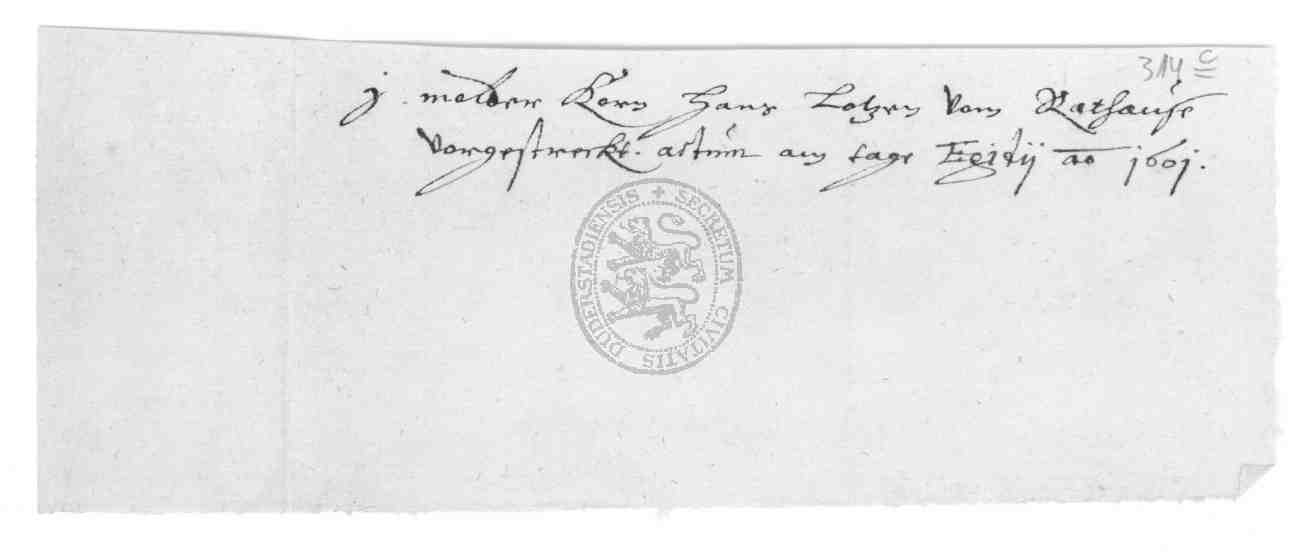 314 c
j. malder Korn Hans Lotzen vom Rathause
vorgestreckt. actum am tage Egidij ao 1601.
SECRETUM CIVITATIS DUDERSTADIENSIS